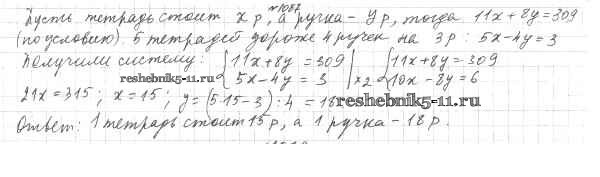 №1087
Пусть тетрадь стоит x р, а ручка - y р, тогда 11x + 8y = 309
(по условию). 5 тетрадей дороже 4 ручек на 3 р : 5x - 4y = 3
Получили систему: { 11x + 8y = 309 | { 11x + 8y = 309
5x - 4y = 3 | ×2 10x - 8y = 6
www.reshebnik5-11.ru
21x = 315 ; x = 15 ; y = (5·15 - 3) : 4 = 18
reshebnik5-11.ru
Ответ: 1 тетрадь стоит 15 р, а 1 ручка - 18 р.